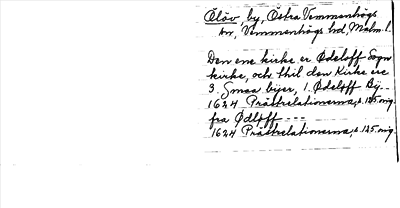 Ölöv, by, Östra Vemmenhögs
sn, Vemmenhögs hd, Malm. l.
Den ene kirke er Ødeloff Sogn
kirke, och thil den Kirke ere
3 Smaa byer, 1. Ødeløff By --
1624 Prästrelationerna, s. 125 mig.
fra Ødløff ---
1624 Prästrelationerna, s. 125 mig.